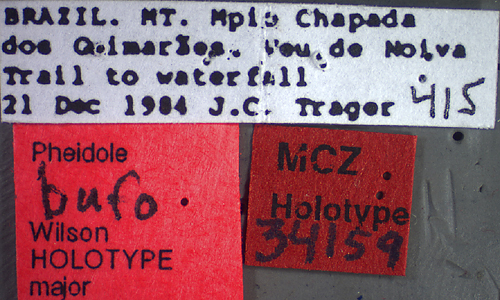 BRAZIL. MT. Mpio Chapada
dos Guimarães. Veu de Noiva
Trail to waterfall
21 Dec 1984 J.C. Trager 415
Pheidole
bufo
Wilson
HOLOTYPE
major
MCZ
Holotype
34159